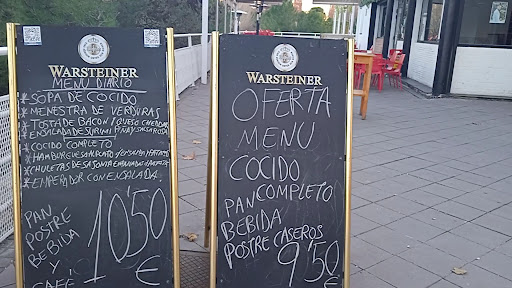 WARSTEINER
MENU DIARIO
*SOPA DE COCIDO
*MENESTRA DE VERDURAS
*TOSTA DE BACON Y QUESO CHEDDAR
*ENSALADA DE SURIMI
*COCIDO COMPLETO
*HAMBURGUESA AL PLATO
*CHULETAS DE SAJONIA
*EMPERADOR CON ENSALADA
PAN
POSTRE
BEBIDA
Y
CAFÉ
10'50
€
WARSTEINER
OFERTA
MENU
COCIDO
COMPLETO
PAN
BEBIDA
POSTRE CASEROS
9'50
€